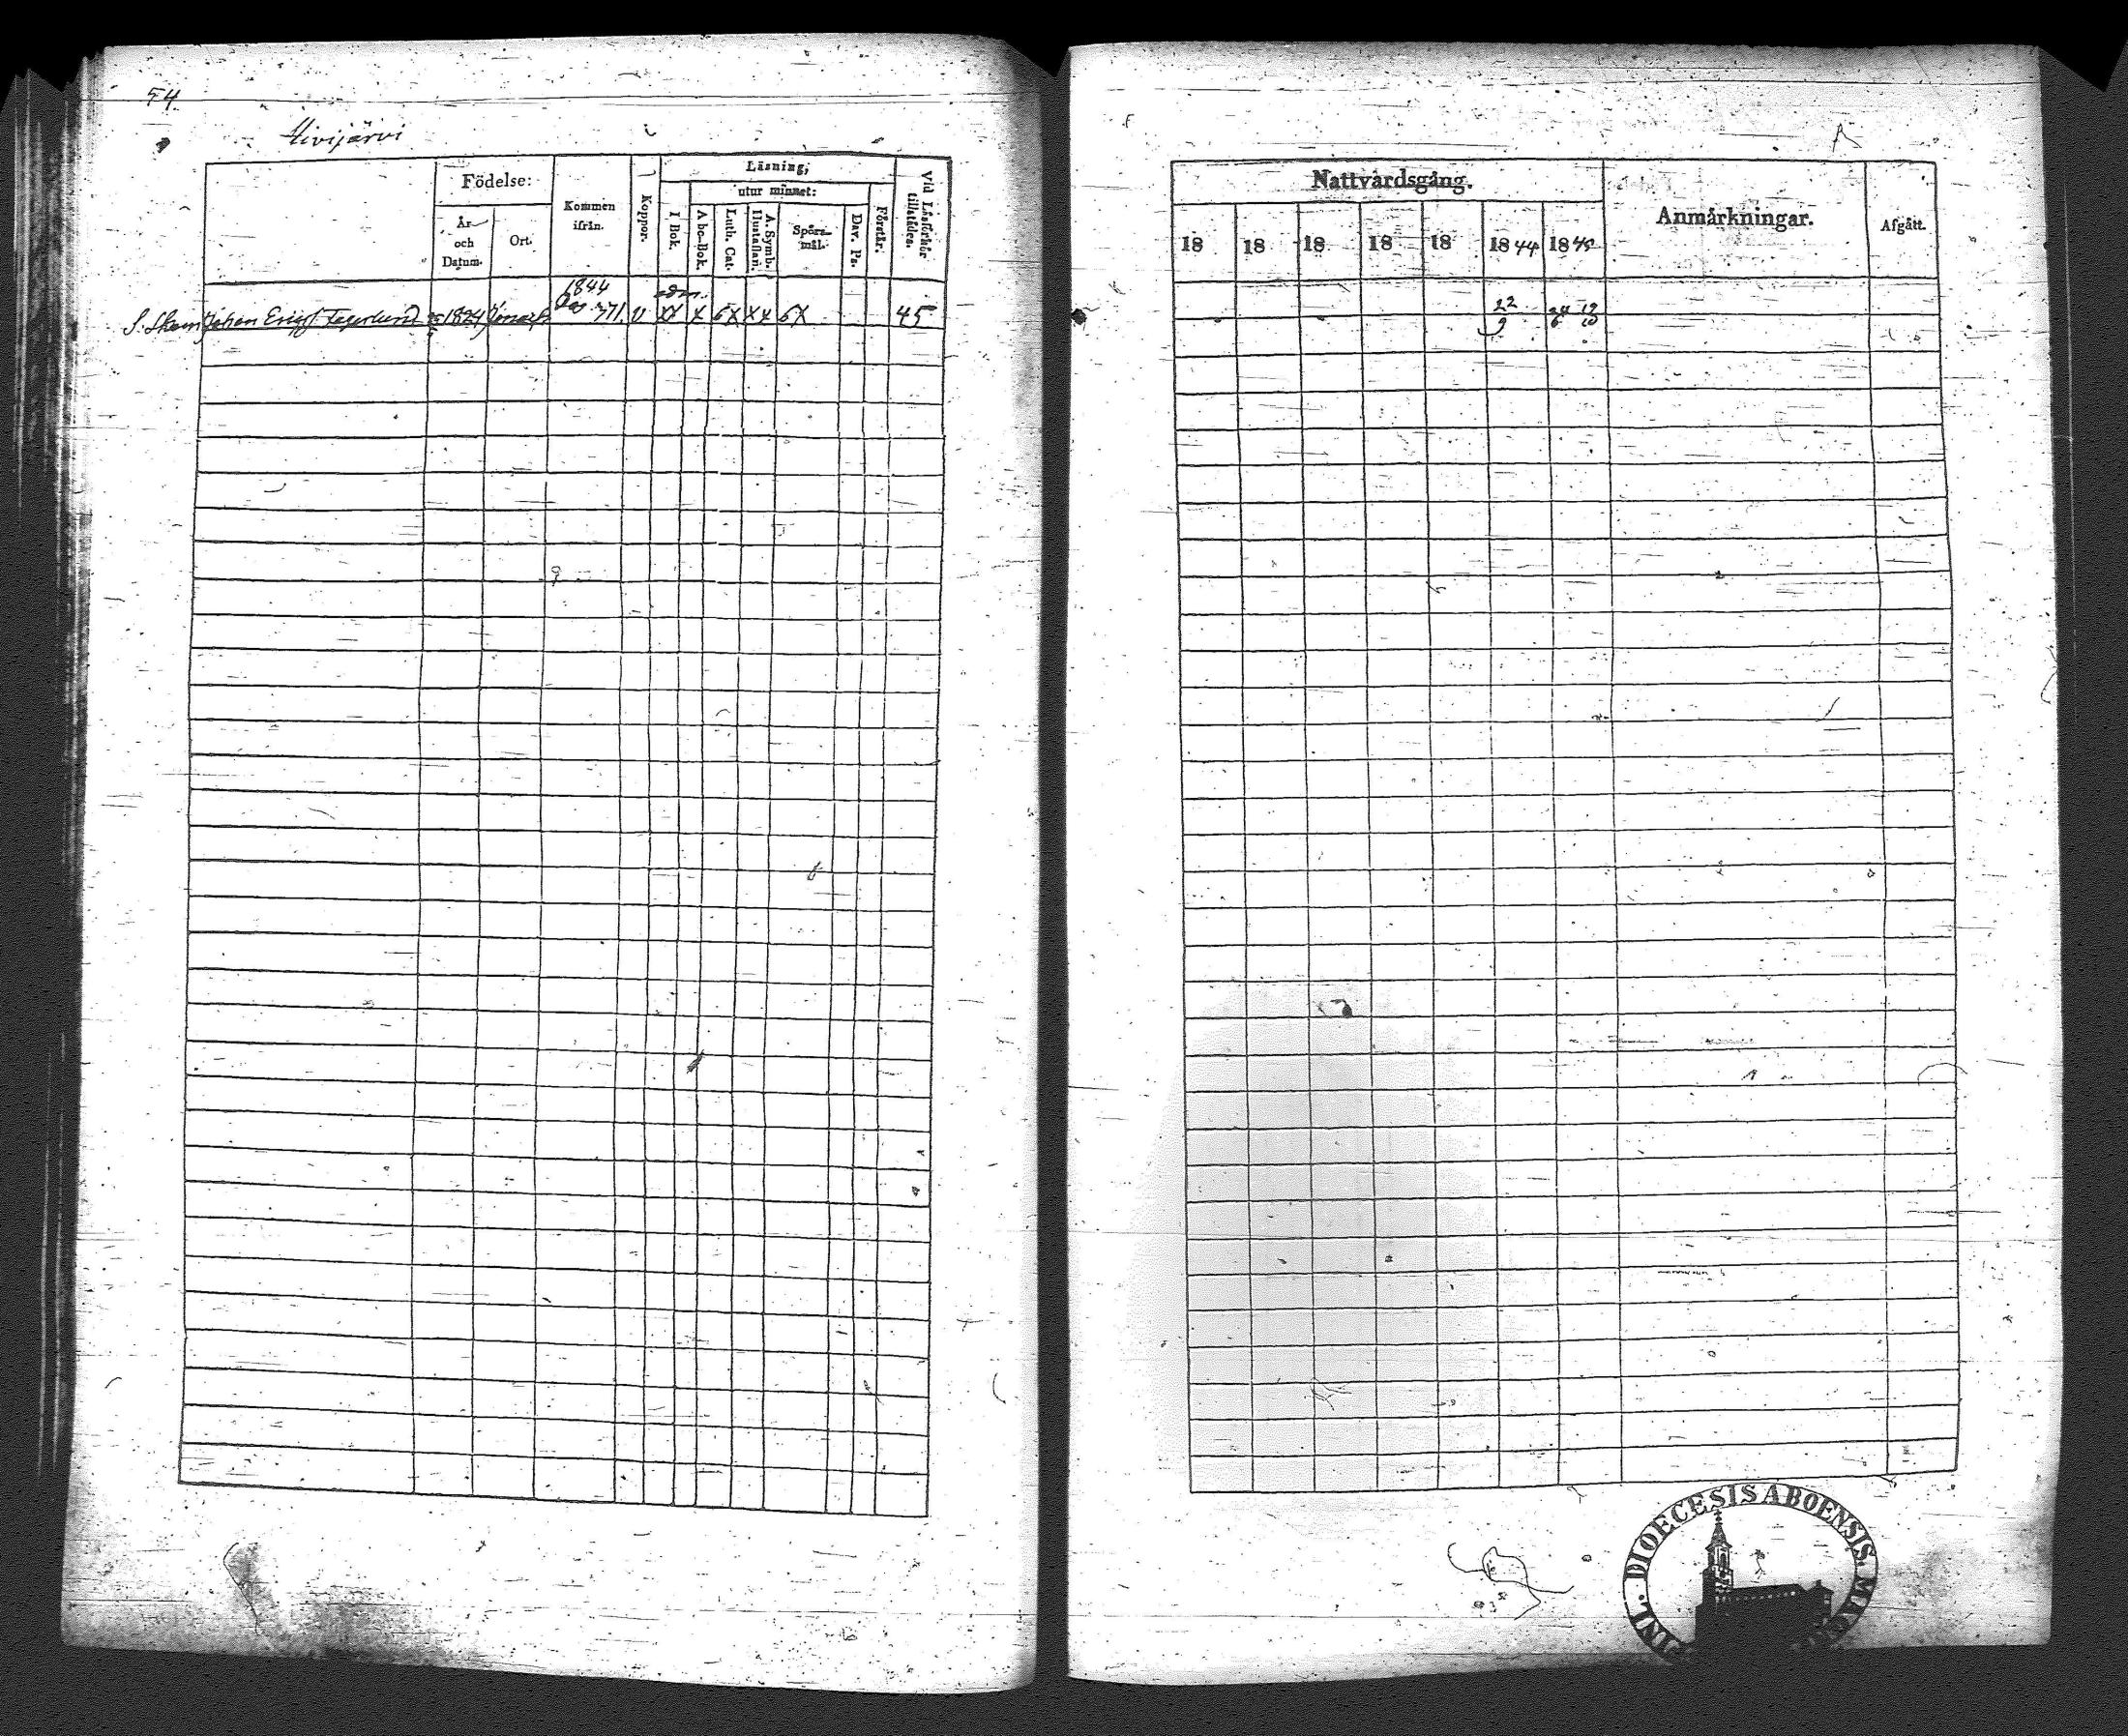 54.
Hivijärvi
Födelse:
År och Datum.
Ort.
Kommen ifrån.
Koppor.
Läsning,
I Bok.
utur minnet:
Abc-Bok.
Luth. Cat.
A. Symb. Hustaflan.
Spörs-mål.
Dav. Ps.
Förstår.
Vid Läsförhör tillstädes.
1844
S. Skom Johan Ericss Fagerlund 1824 771 v XX X 6X XX 6X 45
Nattvardsgång.
Anmärkningar.
Afgått.
18 18 18 18 18 1844 1845
22 24 19
9 6 10
DIOECESIS ABOENSIS